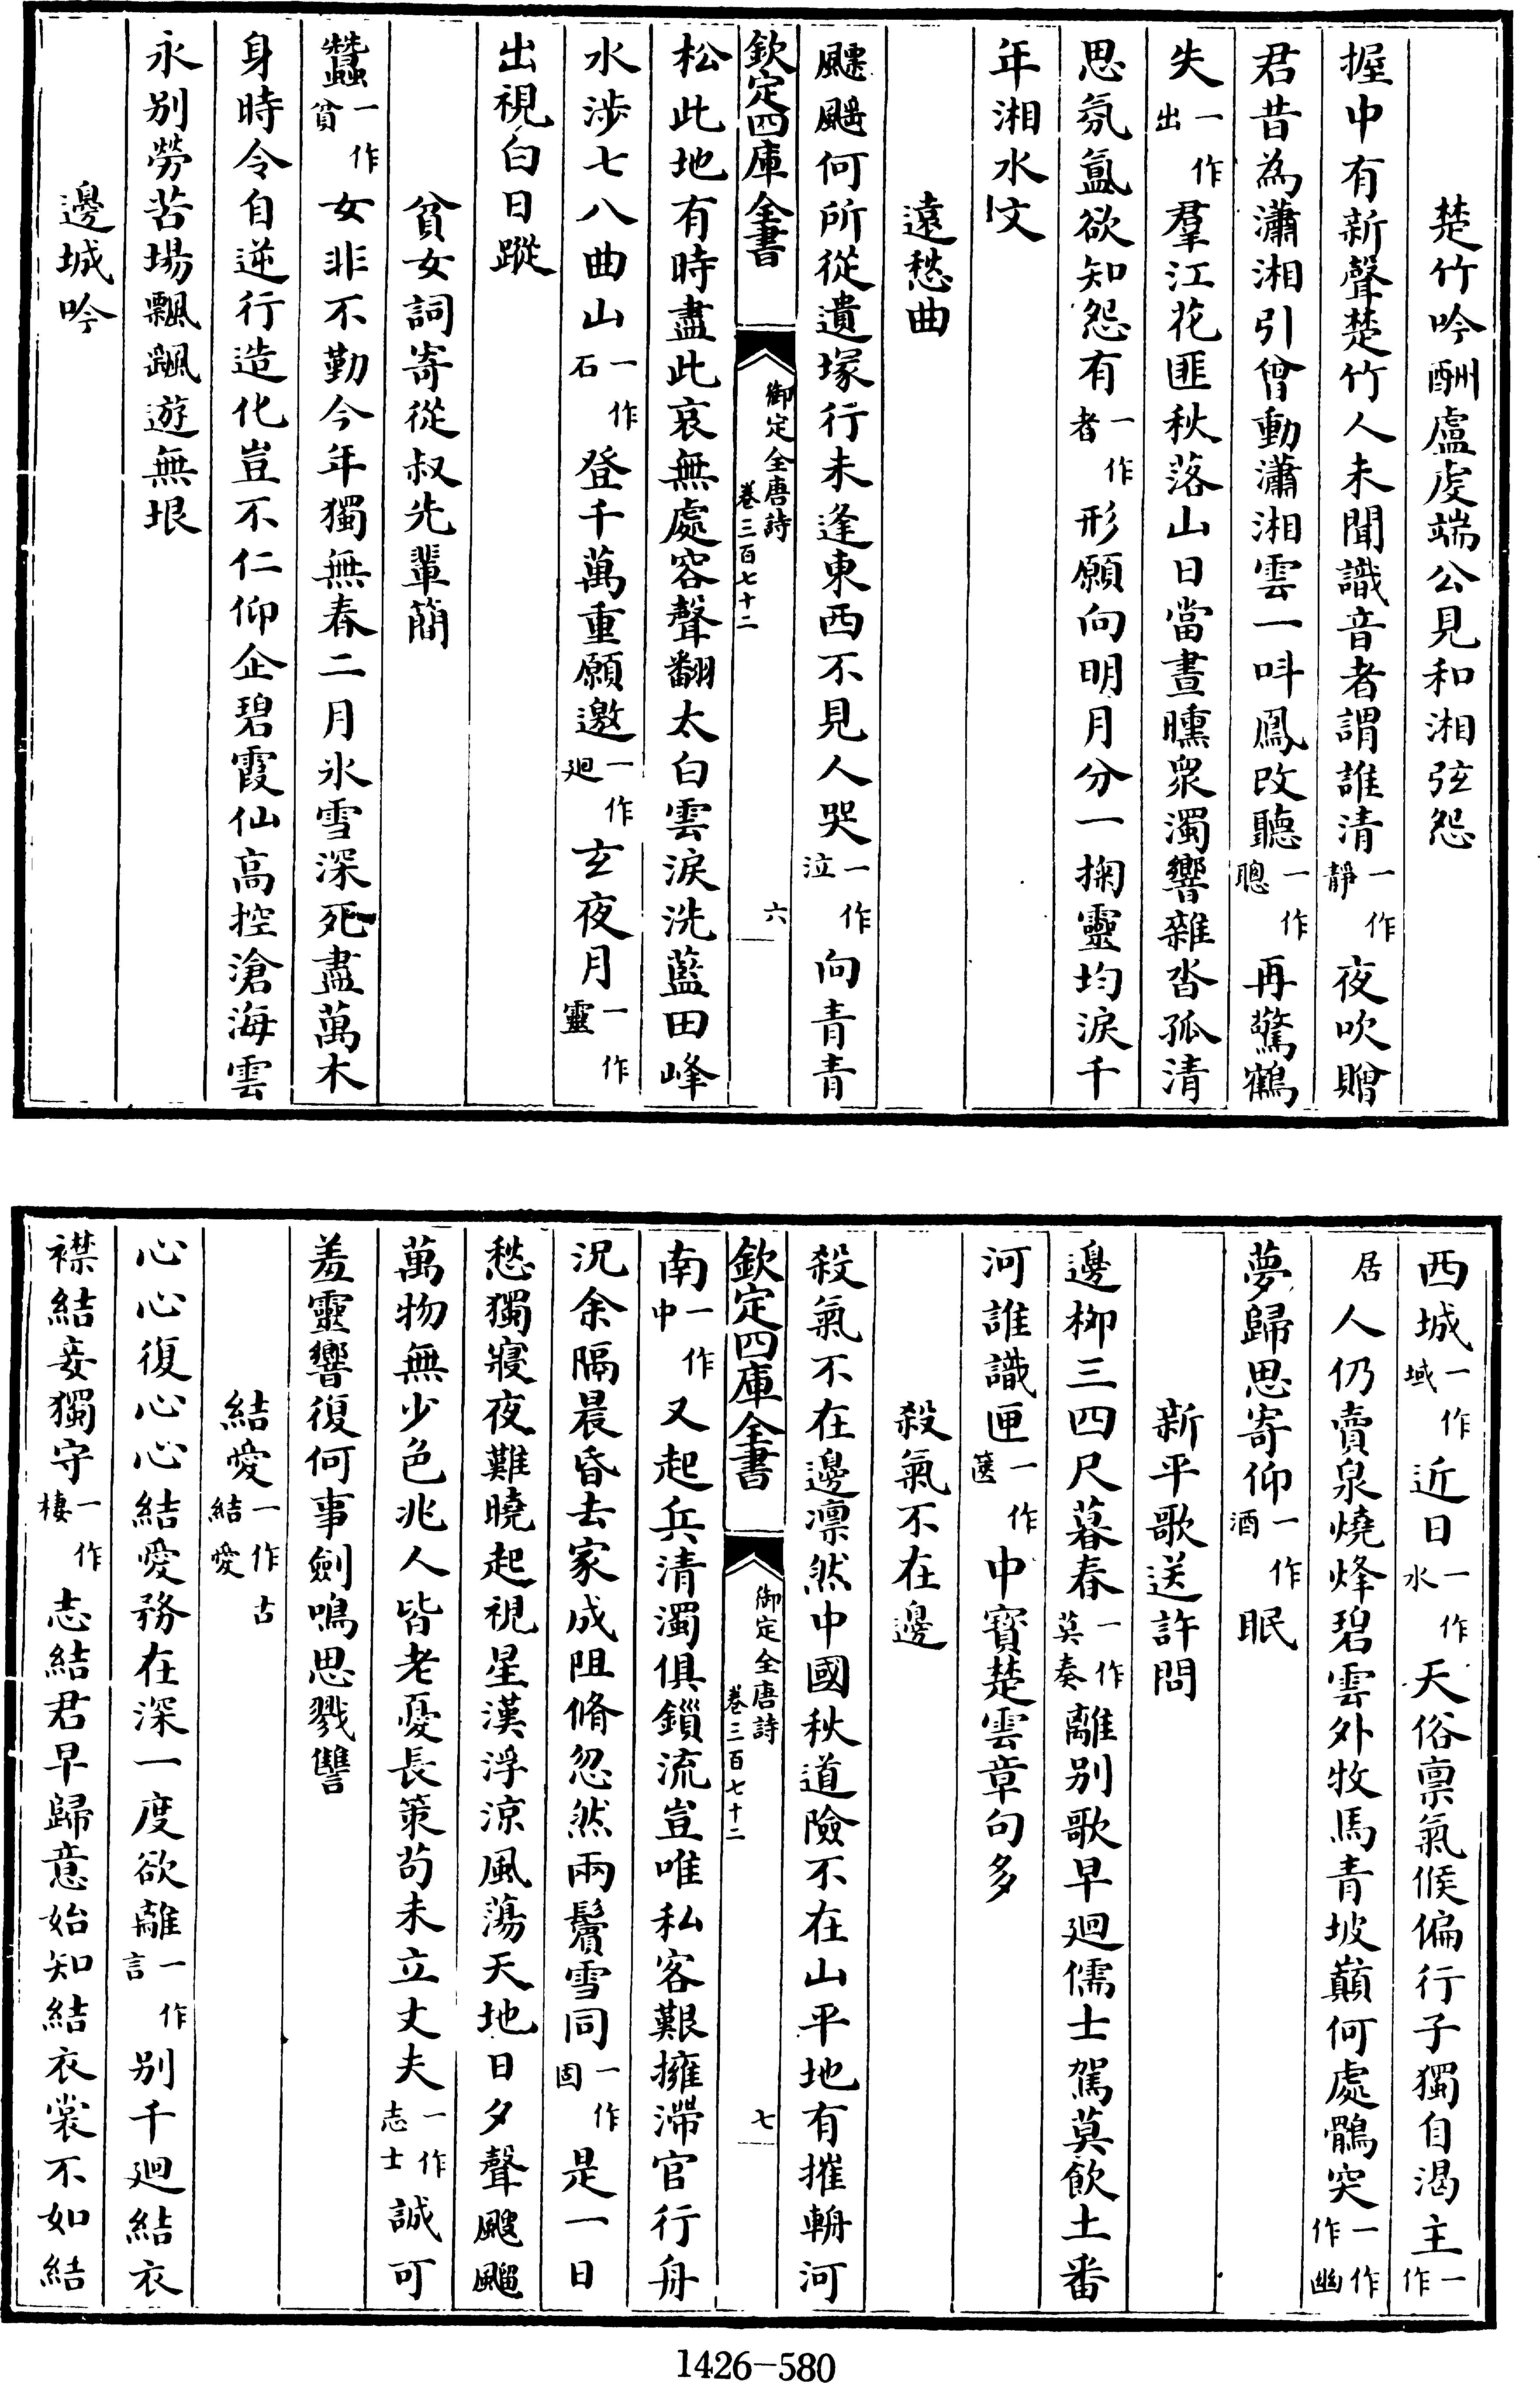 楚竹吟酬盧虔端公見和湘弦怨
握中有新聲楚竹人未聞識音者謂誰清一作靜夜吹贈
君昔為瀟湘引曾動瀟湘雲一呌鳳改聽一作聰再驚鶴
失一作出羣江花匪秋落山日當晝曛衆濁響雜沓孤清
思氛氳欲知怨有一作者形願向明月分一掬靈均淚千
年湘水文
遠愁曲
飃颻何所從遺塚行未逢東西不見人哭一作泣向青青
欽定四庫全書
御定全唐詩
卷三百七十二
六
松此地有時盡此哀無處容聲翻太白雲淚洗藍田峰
水涉七八曲山一作石登千萬重願邀一作廻玄夜月一作靈
出視白日蹤
貧女詞寄從叔先輩簡
蠶一作貧女非不勤今年獨無春二月氷雪深死盡萬木
身時令自逆行造化豈不仁仰企碧霞仙高控滄海雲
永別勞苦場飄颻遊無垠
邊城吟
西城一作域近日一作水天俗禀氣候偏行子獨自渴主一作
居人仍賣泉燒烽碧雲外牧馬青坡巔何處鶻突一作作幽
夢歸思寄仰一作酒眠
新平歌送許問
邊柳三四尺暮春一作莫奏離別歌早廻儒士駕莫飲土番
河誰識匣一作篋中寳楚雲章句多
殺氣不在邊
殺氣不在邊凛然中國秋道險不在山平地有摧輈河
欽定四庫全書
御定全唐詩
卷三百七十二
七
南一作中又起兵清濁俱鎻流豈唯私客艱擁滯官行舟
況余隔晨昏去家成阻脩忽然兩鬢雪同一作固是一日
愁獨寢夜難曉起視星漢浮涼風蕩天地日夕聲颼飀
萬物無少色兆人皆老憂長策茍未立丈夫一作志士誠可
羞靈響復何事劍鳴思戮讐
結愛一作古結愛
心心復心心結愛務在深一度欲離一作言別千廻結衣
襟結妾獨守一作棲志結君早歸意始知結衣裳不如結
1426-580